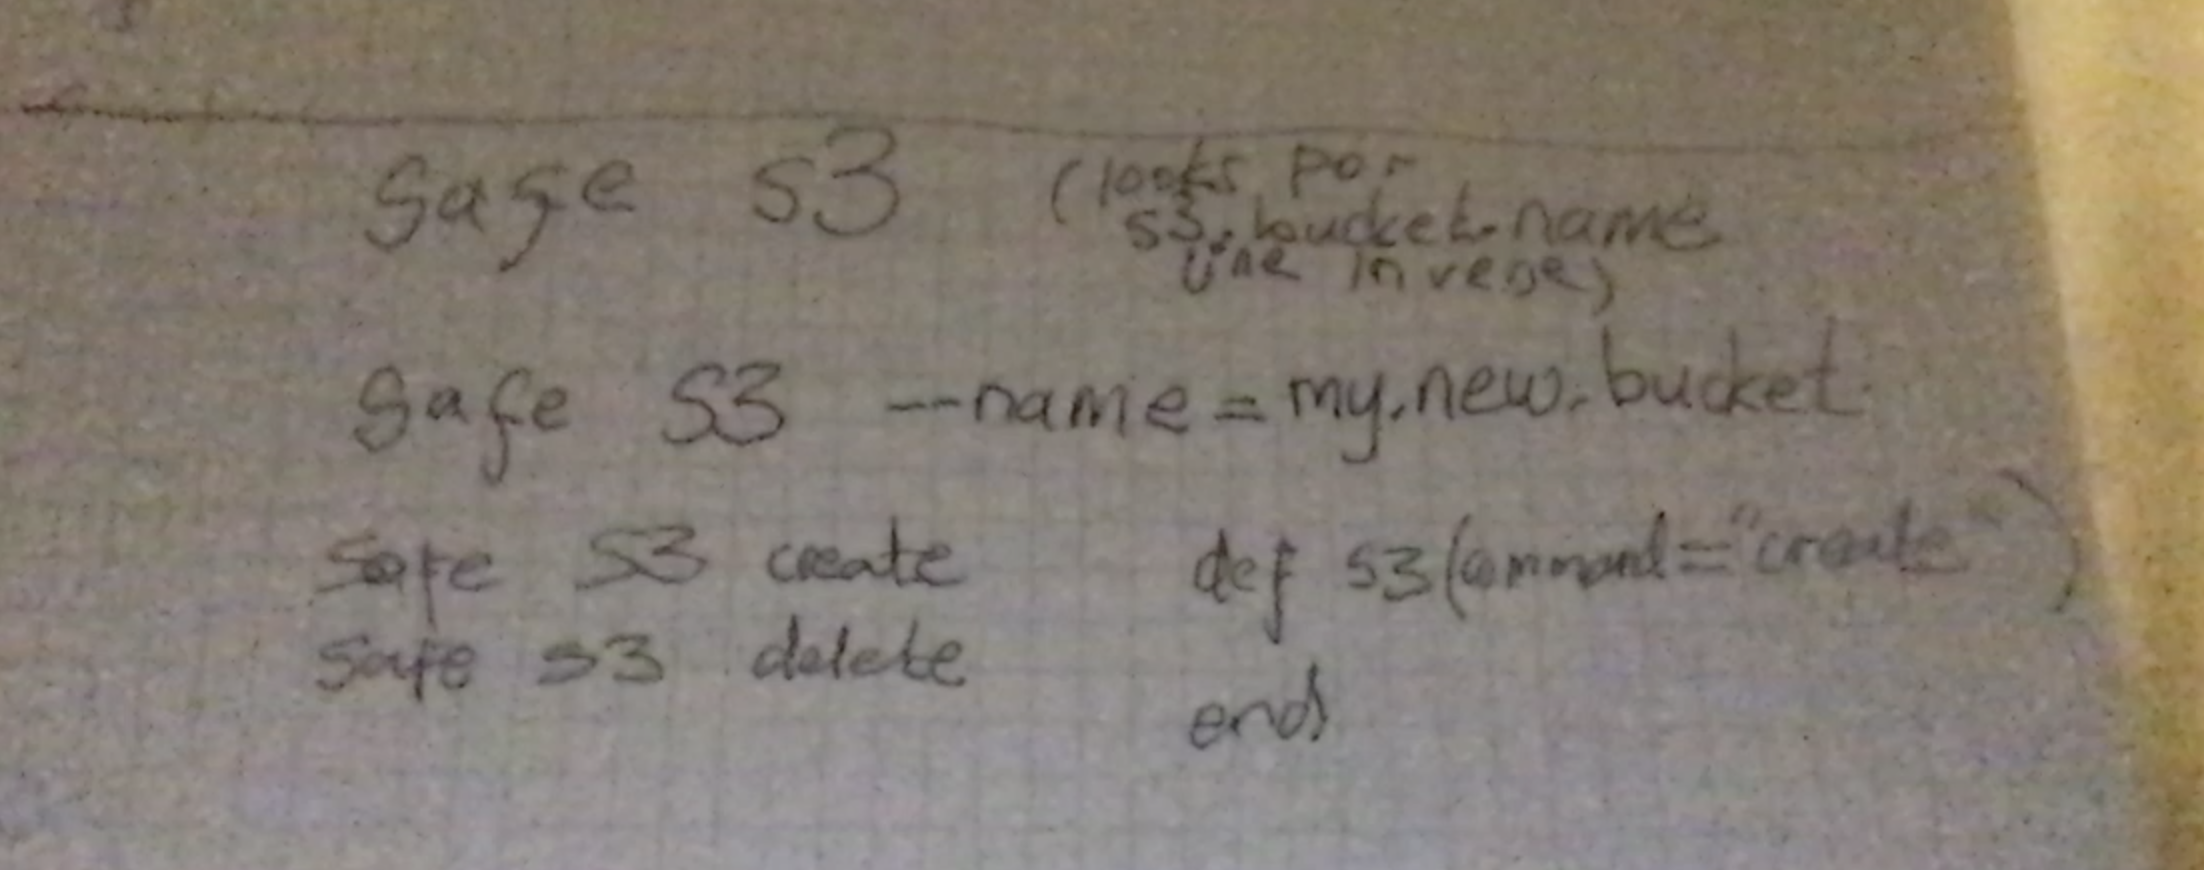 safe s3 (looks for
s3.bucket.name
line in verse)
safe s3 --name=my.new.bucket
safe s3 create
safe s3 delete
def s3(command="create")
end